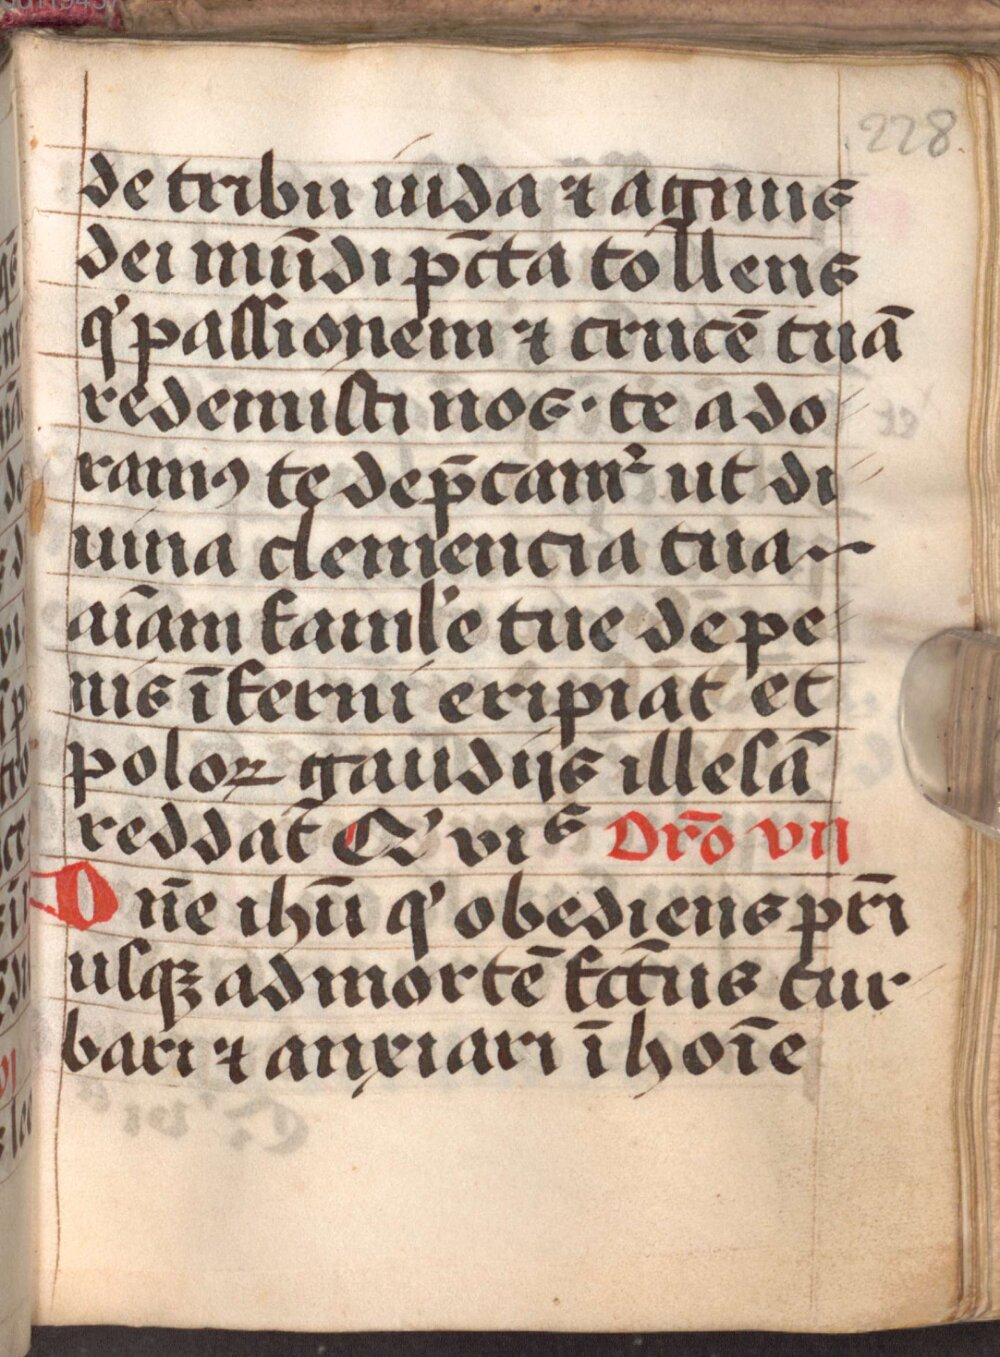 228
de tribu iuda ⁊ agnus
dei mūdi pctā tollens
q' passionem ⁊ crucē tuā
redemisti nos · te ado
ramꝰ te dep̄camr̉ ut di
uina clemencia tua
aīam famĺe tue de pe
nis īferni eripiat et
poloꝝ gaudijs illesā
reddat Q' vis Orō vii
Dn̄e ihū q' obediens pr̄i
usqꝫ ad mortē fc̄tus tur
bari ⁊ anxiari ī hoīe